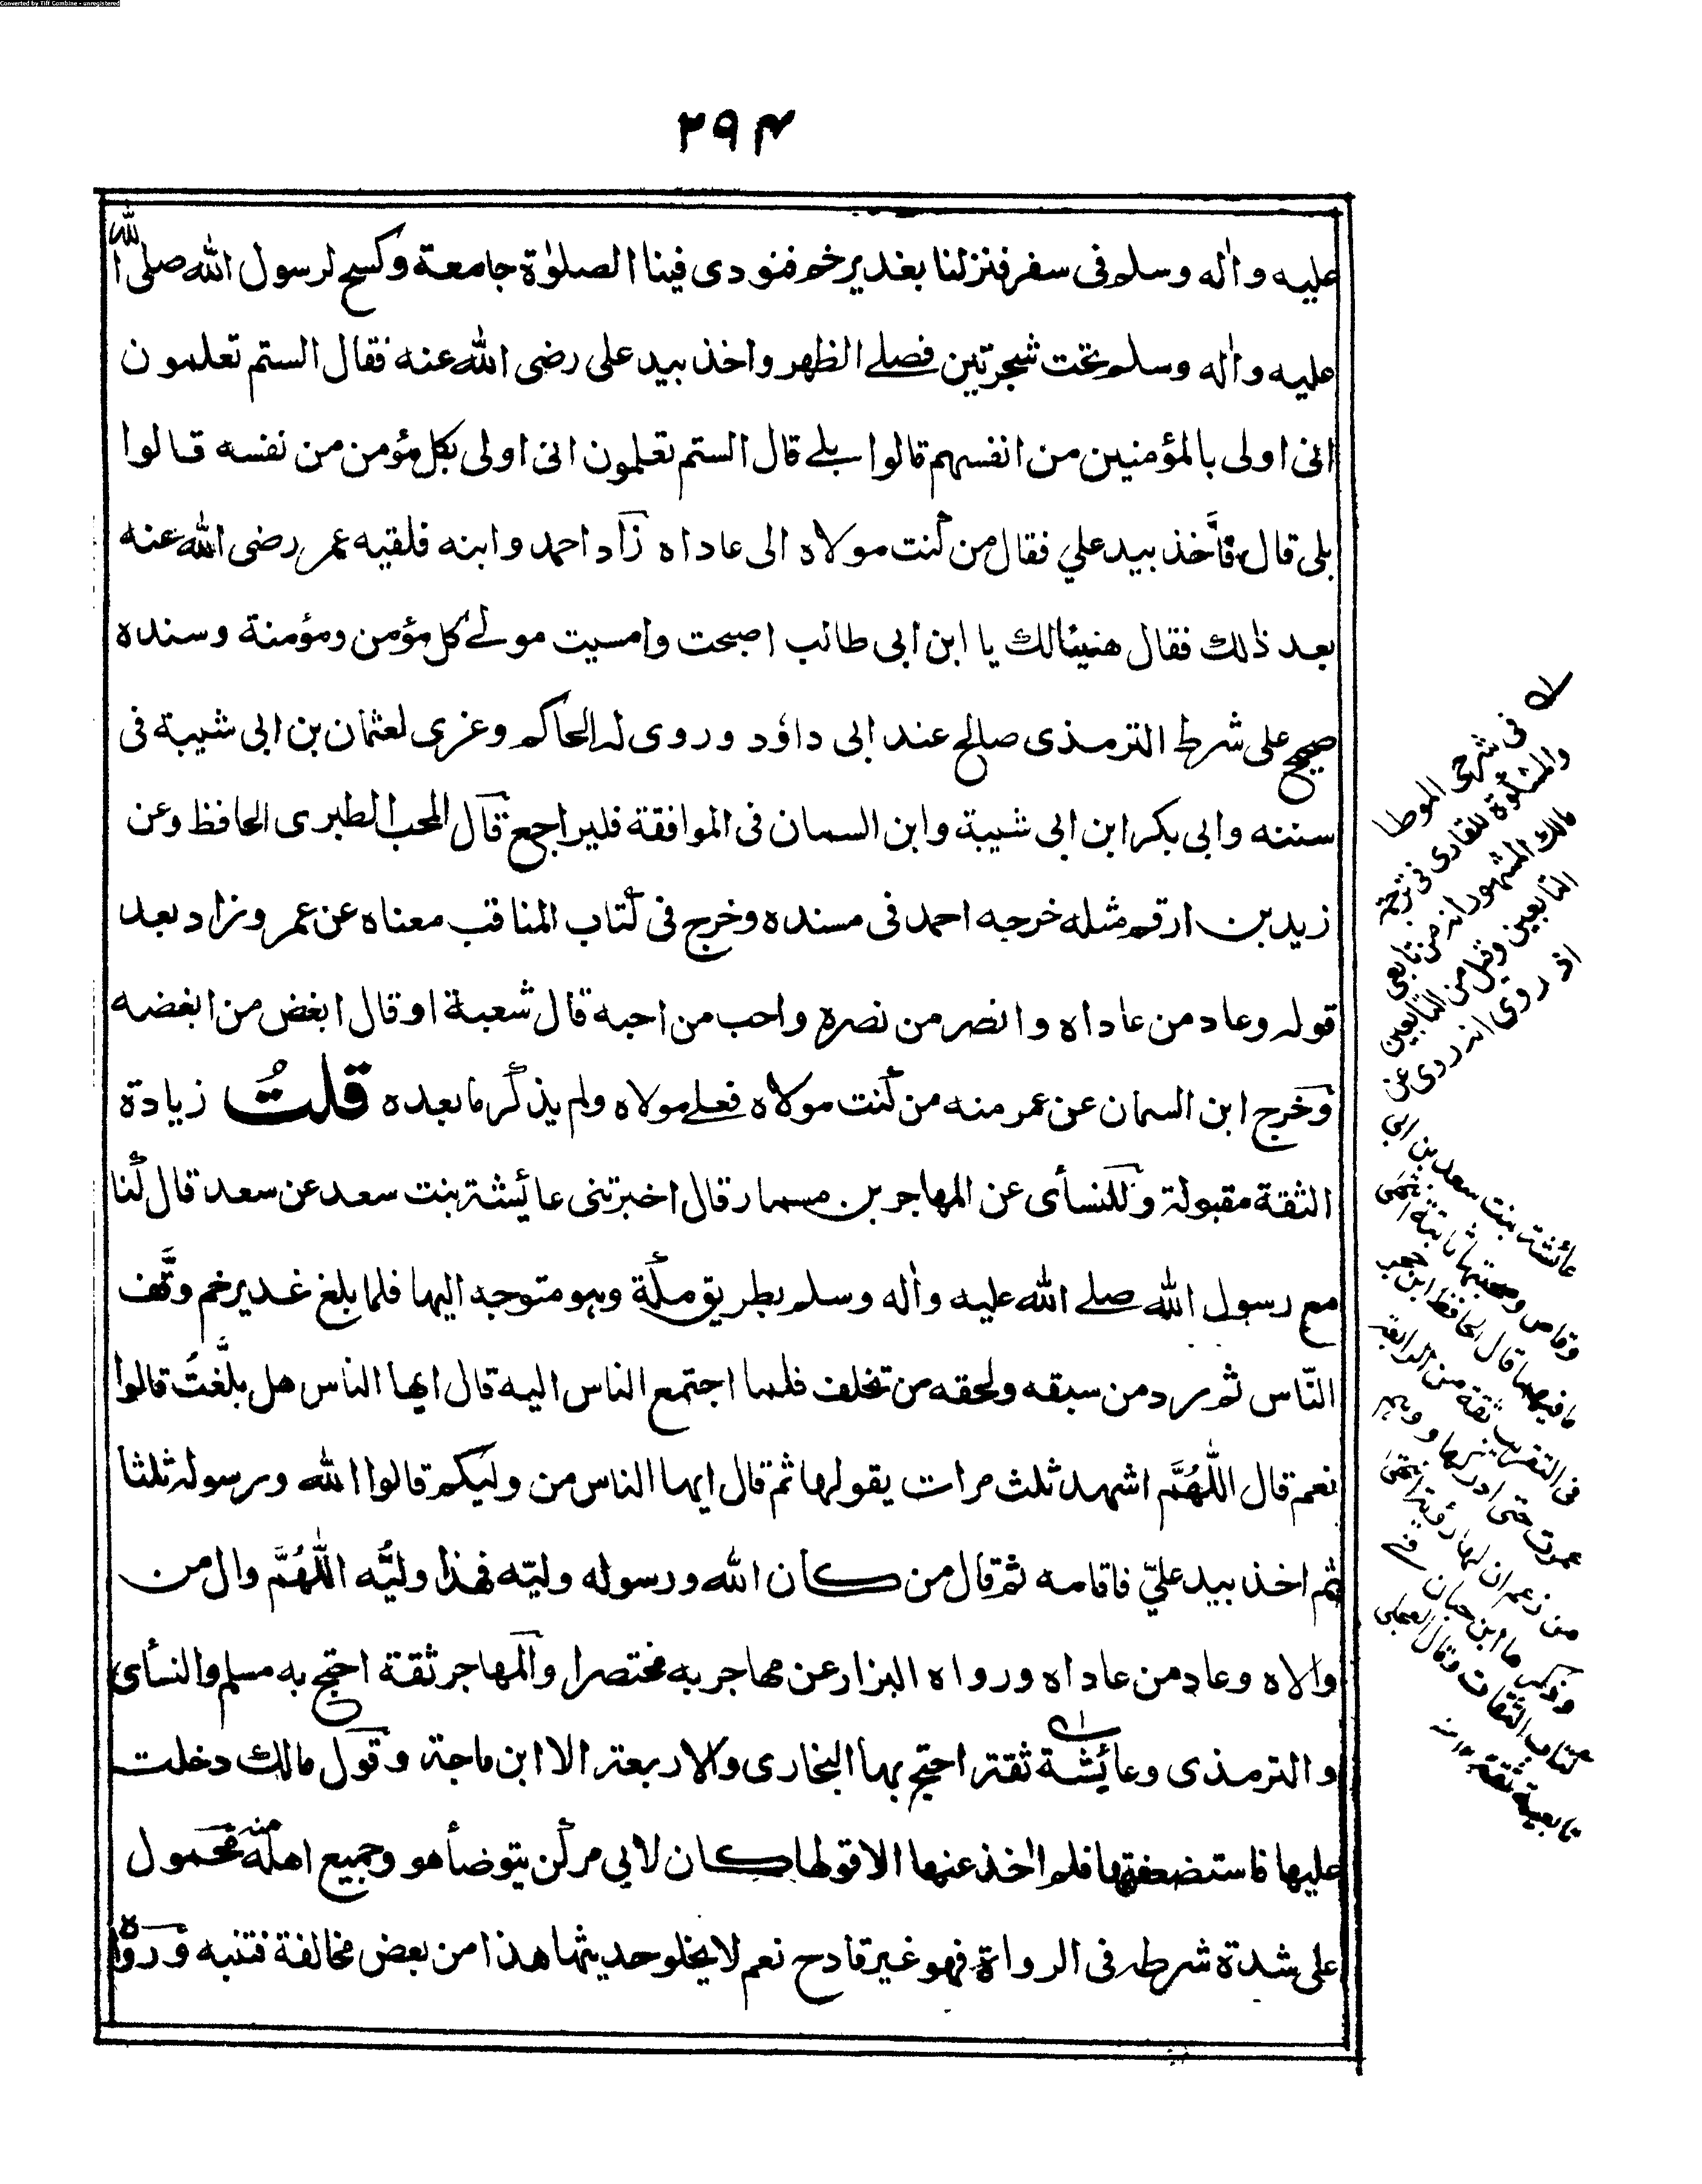 Converted by Tiff Combine - unregistered
۲۹۴
عليه واٰله وسلم فى سفر فنزلنا بغدير خم فنودى فينا الصلوٰة جامعة وكسح لرسول الله صلى الله
عليه واٰله وسلم تحت شجرتين فصلے الظهر واخذ بيد على رضى الله عنه فقال الستم تعلمون
انى اولى بالمؤمنين من انفسهم قالوا بلے قال الستم تعلمون انى اولى بكل مؤمن من نفسه قالوا
بلى قال فأخذ بيد علي فقال من كنت مولاه الى عاداه زاد احمد وابنه فلقيه عمر رضى الله عنه
بعد ذٰلك فقال هنيئا لك يا ابن ابى طالب اصبحت وامسيت مولے كل مؤمن ومؤمنة وسنده
صحيح على شرط الترمذى صالح عند ابى داؤد وروى له الحاكم وعزى لعثمان بن ابى شيبة فى
سننه وابى بكر ابن ابى شيبة وابن السمان فى الموافقة فليراجع قال المحب الطبرى الحافظ وعن
زيد بن ارقم مثله خرجه احمد فى مسنده وخرج فى كتاب المناقب معناه عن عمر وزاد بعد
قوله وعاد من عاداه وانصر من نصره واحب من احبه قال شعبة او قال ابغض من ابغضه
وخرج ابن السمان عن عمر منه من كنت مولاه فعلے مولاه ولم يذكر ما بعده قلتُ زيادة
الثقة مقبولة وللنسأى عن المهاجر بن مسمار قال اخبرتنى عائيشة بنت سعد عن سعد قال كنا
مع رسول الله صلے الله عليه واٰله وسلم بطريق مكة وهو متوجه اليها فلما بلغ غدير خم وقّف
النّاس ثم رد من سبقه ولحقه من تخلف فلما اجتمع الناس اليه قال ايها الناس هل بلّغتُ قالوا
نعم قال اللّٰهُمَّ اشهد ثلث مرات يقولها ثم قال ايها الناس من وليكم قالوا الله ورسوله ثلثا
ثم اخذ بيد عليّ فاقامه ثم قال من كان الله ورسوله وليّه فهذا وليُّه اللّٰهُمَّ وال من
والاه وعاد من عاداه ورواه البزار عن مهاجر به مختصرا والمهاجر ثقة احتج به مسلم والنسأى
والترمذى وعائيشة ثقة احتج بها البخارى والاربعة الا ابن ماجة وقول مالك دخلت
عليها فاستضعفتها فلم اٰخذ عنها الا قولها كان لابي مركن يتوضأ هو وجميع اهله منه محمول
على شدة شرطه فى الرواة فهو غير قادح نعم لا يخلو حديثها هذا من بعض مخالفة فتنبه ورواه
فى شرحى الموطا
والمشكوة للقارى فى ترجمة
مالك المشهور انه من تابعى
التابعين وقيل من التابعين
اذ روى انه روى عن
عائشة بنت سعد بن ابى
وقاص وصحبتها ثابتة انتهى
ما فيهما قال الحافظ ابن حجر
فى التقريب ثقة من الرابعة
عمرت حتى ادركها ووهم
من زعم ان لها رؤية انتهى
وذكرها ابن حبان فى
كتاب الثقات وقال العجلى
تابعية ثقة